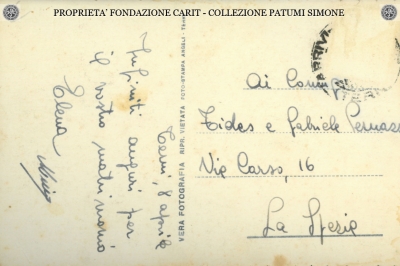 PROPRIETA' FONDAZIONE CARIT - COLLEZIONE PATUMI SIMONE
Terni, 8 aprile
Infiniti auguri per
il vostro matrimonio
Elena
VERA FOTOGRAFIA RIPR. VIETATA FOTO-STAMPA ANGELI - TERNI
ARRIVI
Ai
Fides e Gabriele
Via Corso, 16
La Spezia